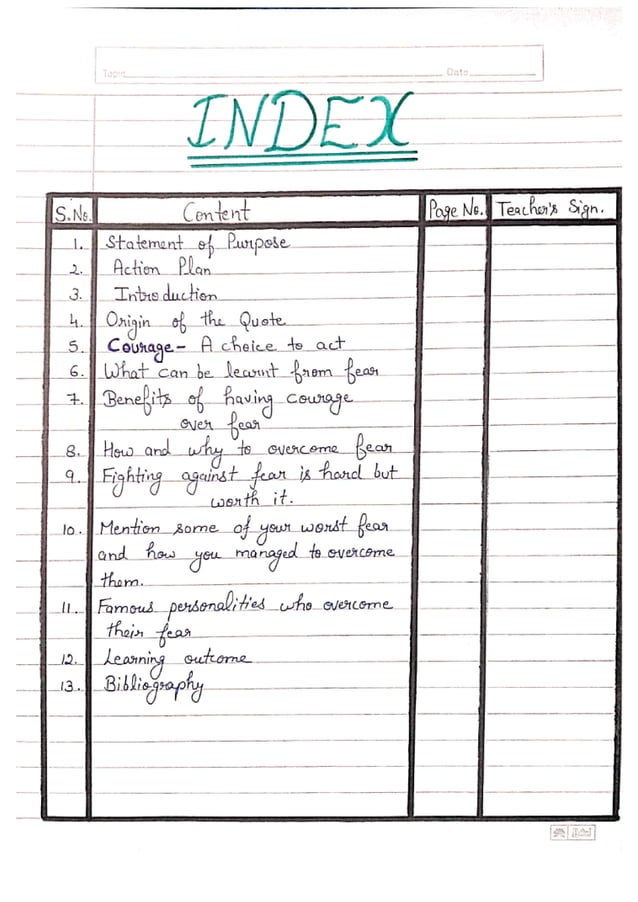 Topic Date
INDEX
S.No. Content Page No. Teacher's Sign.
1. Statement of Purpose
2. Action Plan
3. Introduction
4. Origin of the Quote
5. Courage- A choice to act
6. What can be learnt from fear
7. Benefits of having courage
over fear
8. How and why to overcome fear
9. Fighting against fear is hard but
worth it.
10. Mention some of your worst fear
and how you managed to overcome
them.
11. Famous personalities who overcome
their fear
12. Learning outcome
13. Bibliography